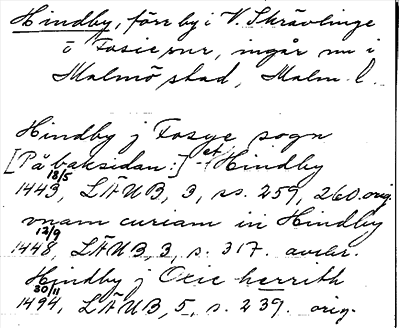 Hindby, förr by i V. Skrävlinge
o Fosie snr, ingår nu i
Malmö stad, Malm. l.
Hindby j Fosye sogn
[På baksidan:] - et Hindby
18/5
1443, LÄUB, 3, ss. 259, 260. orig.
vnam curiam in Hindby
12/9
1448, LÄUB, 3, s. 317. avskr.
Hindby j Oxie herrith
30/11
1494, LÄUB, 5, s. 239. orig.